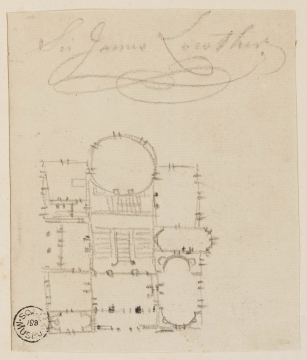 Sir James Lowther